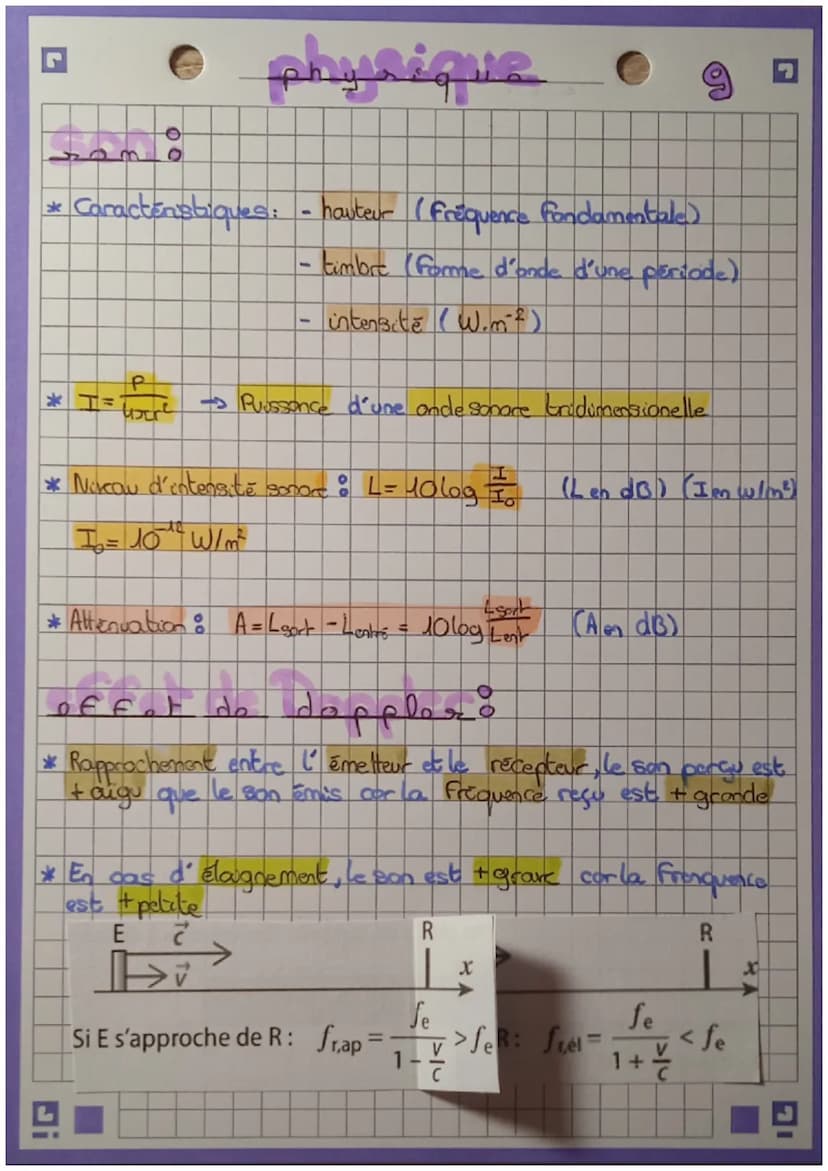 physique
9
son :
* Caractéristiques : - hauteur (fréquence fondamentale)
- timbre (forme d'onde d'une période)
- intensité (W.m⁻²)
* I = P / 4πr² → Puissance d'une onde sonore tridimensionelle
* Niveau d'intensité sonore : L = 10 log I / I₀ (L en dB) (I en w/m²)
I₀ = 10⁻¹² W/m²
* Atténuation : A = Lsort - Lentré = 10 log Lsort / Lent (A en dB)
effet de doppler :
* Rapprochement entre l'émetteur et le récepteur, le son perçu est
+ aigu que le son émis car la fréquence reçu est + grande
* En cas d'élaignement, le son est + grave car la frenquence
est + petite
E c⃗ R R
v⃗ x x
Si E s'approche de R : fr,ap = fe / (1 - v/c) > fe R : fr,él = fe / (1 + v/c) < fe